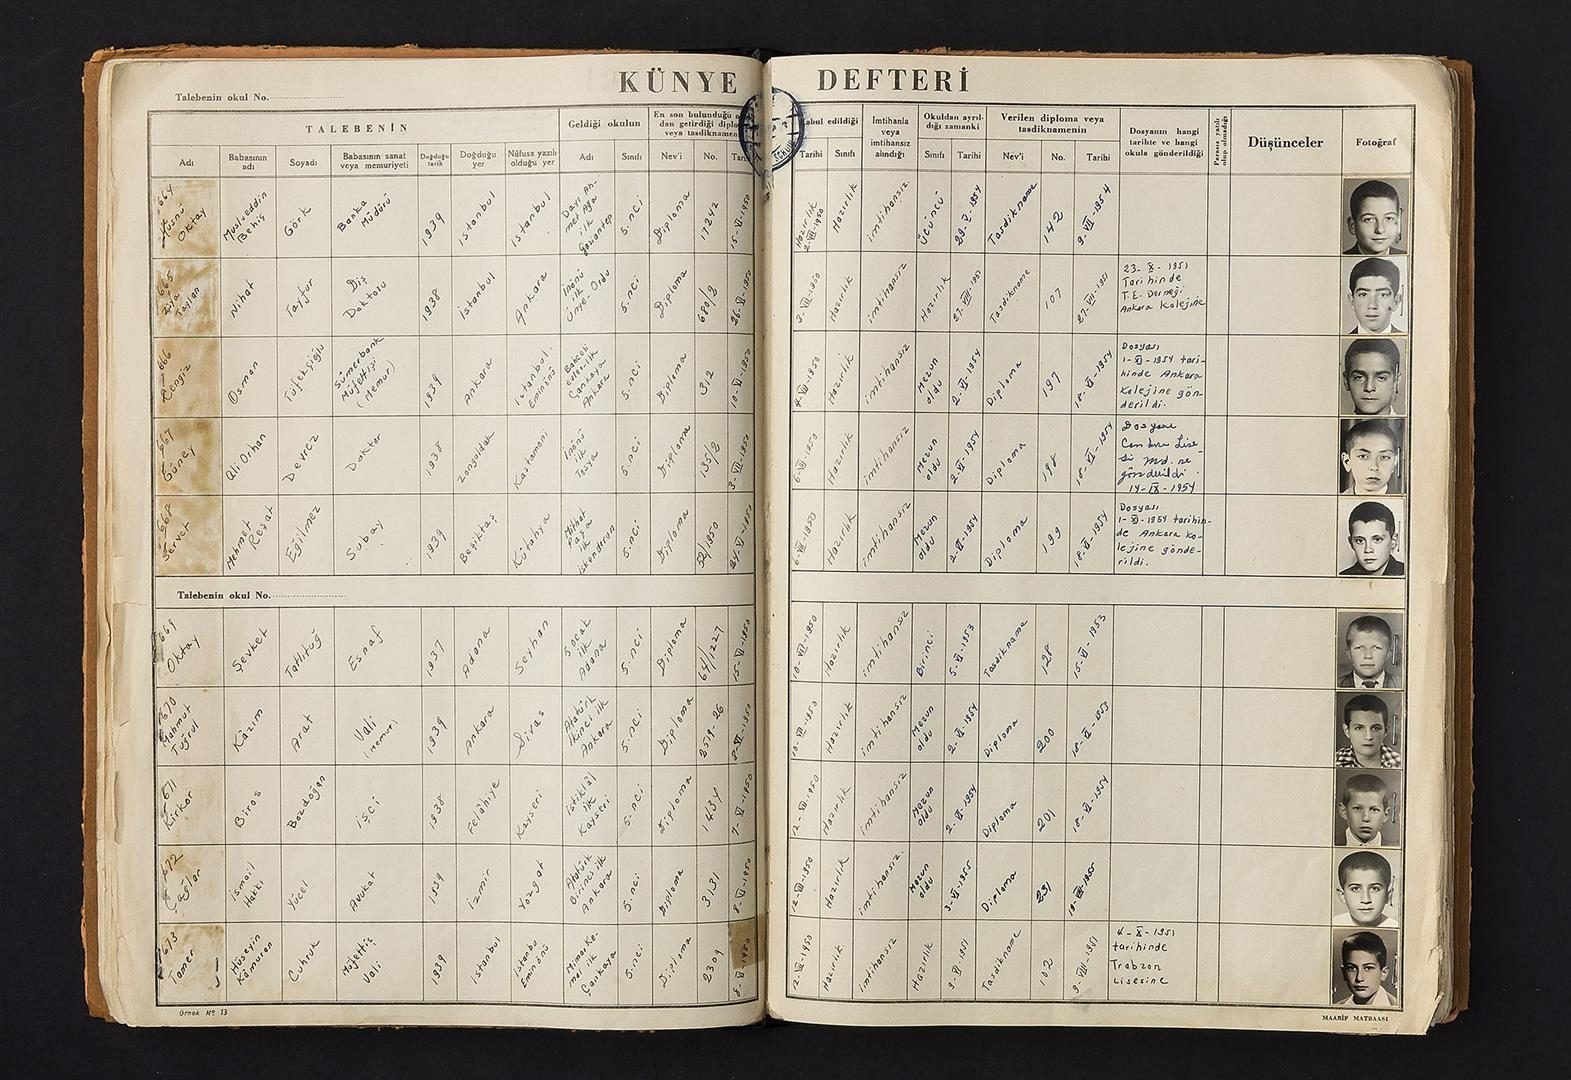 KÜNYE DEFTERİ
Talebenin okul No.
TALEBENİN
Geldiği okulun
En son bulunduğu o
dan getirdiği diplo
veya tasdiknamen
Adı
Babasının adı
Soyadı
Babasının sanat veya memuriyeti
Doğduğu tarih
Doğduğu yer
Nüfusa yazılı olduğu yer
Adı
Sınıfı
Nev'i
No.
Tari
abul edildiği
Tarihi
Sınıfı
İmtihanla veya imtihansız alındığı
Okuldan ayrıldığı zamanki
Sınıfı
Tarihi
Verilen diploma veya tasdiknamenin
Nev'i
No.
Tarihi
Dosyanın hangi tarihte ve hangi okula gönderildiği
Parasız yatılı olup olmadığı
Düşünceler
Fotoğraf
664 Hüsnü Oktay
Muslueddin Behiş
Görk
Banka Müdürü
1939
istanbul
istanbul
Dayı Ahmet Ağa ilk Gaziantep
5.nci
Diploma
17242
15-VI-1950
Hazırlık 2-VII-1950
Hazırlık
imtihansız
Üçüncü
29-V-1954
Tasdikname
142
9-VI-1954
665 Ziya Taylan
Nihat
Tayfur
Diş Doktoru
1938
istanbul
Ankara
İnönü ilk Ünye-Ordu
5.nci
Diploma
680/2
26-VI-1950
3-VII-1950
Hazırlık
imtihansız
Hazırlık
27-VII-1951
Tasdikname
107
27-VII-1951
23-X-1951
Tarihinde
T.E. Derneği
Ankara Kolejine
666 Cengiz
Osman
Tüfekçioğlu
Sümerbank Müfettişi (Memur)
1939
Ankara
istanbul. Eminönü
Bahçelievler ilk Çankaya Ankara
5.nci
Diploma
312
10-VI-1950
4-VII-1950
Hazırlık
imtihansız
Mezun oldu
2-VI-1954
Diploma
197
18-VI-1954
Dosyası
1-XI-1954 tari-
hinde Ankara
Kolejine gön-
derildi.
667 Güney
Ali Orhan
Devrez
Doktor
1938
Zonguldak
Kastamoni
İnönü ilk Tosya
5.nci
Diploma
135/2
3-VII-1950
6-VII-1950
Hazırlık
imtihansız
Mezun oldu
2-VI-1954
Diploma
198
18-VI-1954
Dosyası
Lise-
si Md. ne
gönderildi
14-IX-1954
668 Servet
Mehmet Reşat
Eğilmez
Subay
1939
Beşiktaş
Kütahya
Mithat Paşa ilk iskenderun
5.nci
Diploma
52/1950
24-VI-1950
6-VII-1950
Hazırlık
imtihansız
Mezun oldu
2-VI-1954
Diploma
199
18-VI-1954
Dosyası
1-XI-1954 tarihin-
de Ankara Ko-
lejine gönde-
rildi.
Talebenin okul No.
669 Oktay
Şevket
Tatlıtuğ
Esnaf
1937
Adana
Seyhan
5 ocak ilk Adana
5.nci
Diploma
64/1227
15-VI-1950
10-VII-1950
Hazırlık
imtihansız
Birinci
5-VI-1953
Tasdikname
128
15-VI-1953
670 Mahmut Tuğrul
Kâzım
Arat
Vali (memur)
1939
Ankara
Sivas
Atatürk ikinci ilk Ankara
5.nci
Diploma
2519-26
8-VI-1950
10-VII-1950
Hazırlık
imtihansız
Mezun oldu
2-VI-1954
Diploma
200
18-VI-1953
671 Kirkor
Biros
Bozdoğan
işçi
1938
Felâhiye
Kayseri
istiklâl ilk Kayseri
5.nci
Diploma
1434
7-VI-1950
12-VII-1950
Hazırlık
imtihansız
Mezun oldu
2-VI-1954
Diploma
201
18-VI-1954
672 Çağlar
ismail Hakkı
Yücel
Avukat
1939
izmir
Yozgat
Atatürk Birinci ilk Ankara
5.nci
Diploma
3131
8-VI-1950
12-VII-1950
Hazırlık
imtihansız.
Mezun oldu
3-VI-1955
Diploma
231
673 Tamer
Hüseyin Kâmuran
Çuhruk
Müfettiş Vali
1939
istanbul
istanbu Eminönü
Mimar Kemal ilk Çankaya
5.nci
Diploma
2309
8-VI-1950
12-VII-1950
Hazırlık.
imtihansız
Hazırlık
9-VI-1951
Tasdikname
102
9-VIII-1951
4-X-1951
tarihinde
Trabzon
Lisesine
Örnek No 13
MAARİF MATBAASI